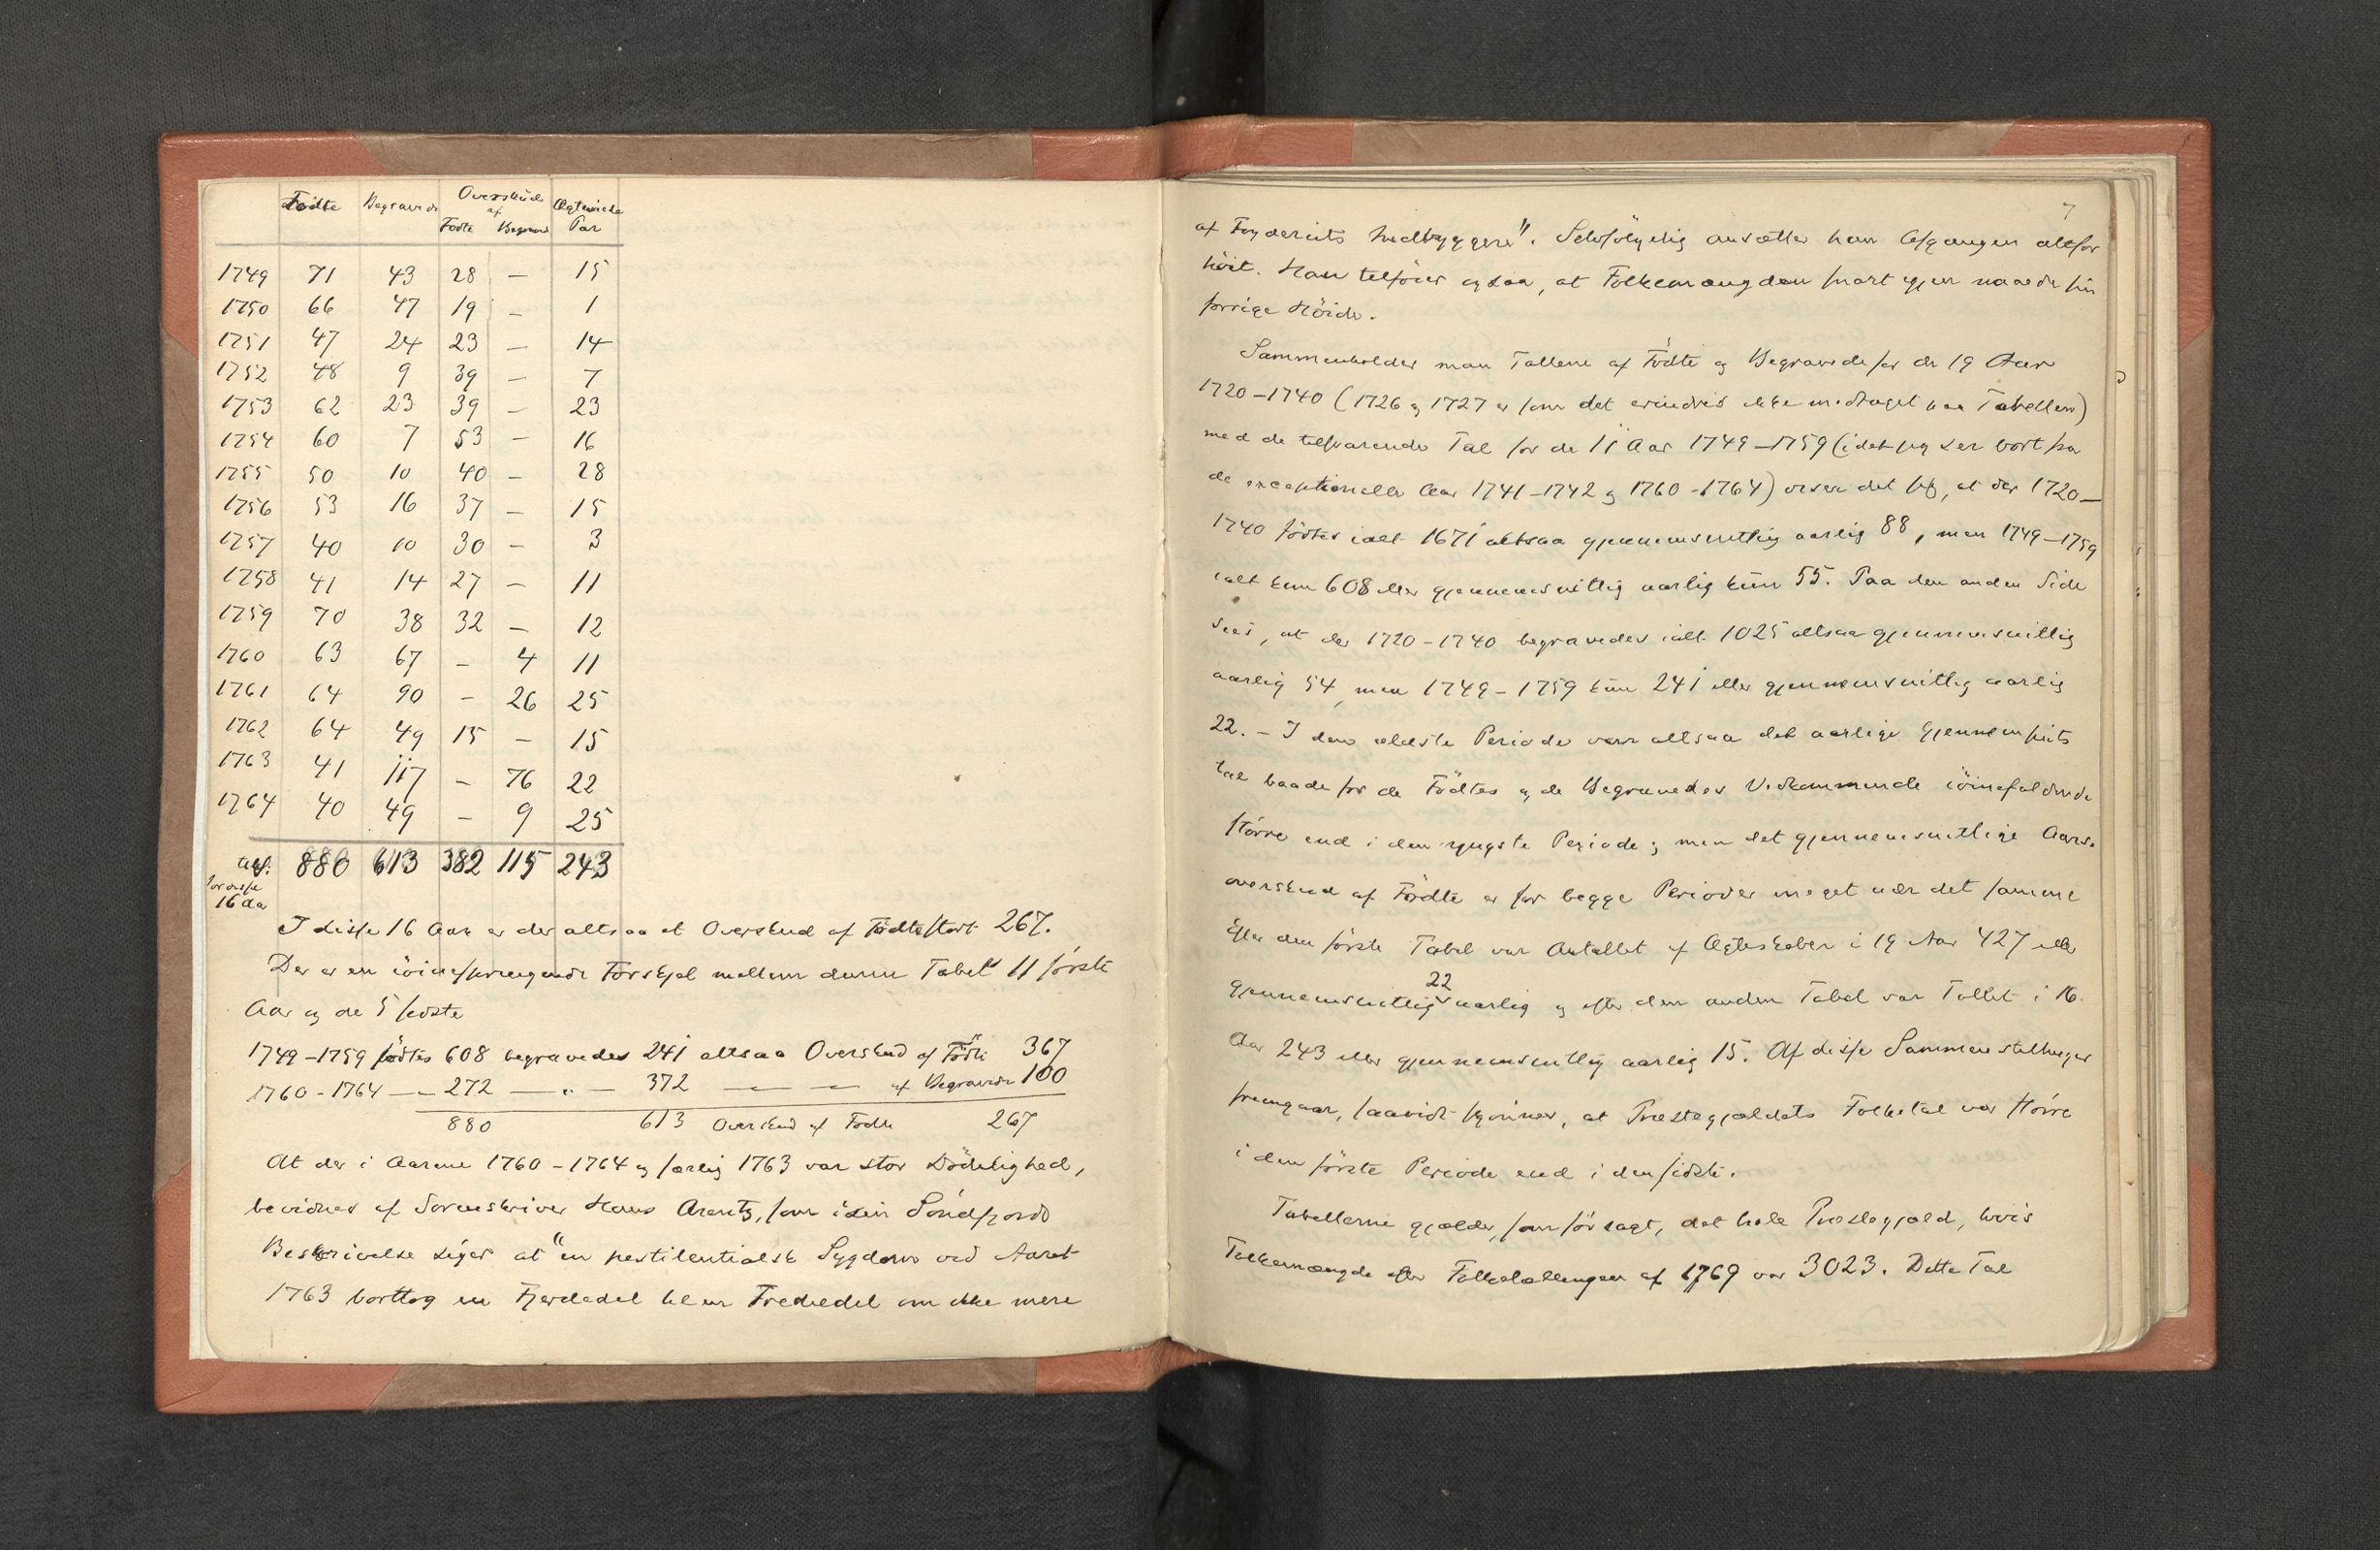 Fødte Begravede Overskud af Ægteviede
Fødte Begravne Par
1749 71 43 28 — 15
1750 66 47 19 — 1
1751 47 24 23 — 14
1752 48 9 39 — 7
1753 62 23 39 — 23
1754 60 7 53 — 16
1755 50 10 40 — 28
1756 53 16 37 — 15
1757 40 10 30 — 3
1758 41 14 27 — 11
1759 70 38 32 — 12
1760 63 67 — 4 11
1761 64 90 — 26 25
1762 64 49 15 — 15
1763 41 117 — 76 22
1764 40 49 — 9 25
880 613 382 115 243
16 Aar
I disse 16 Aar er der altsaa et Overskud af Födte stort 267.
Der er en iöinespringende Forskjel mellem denne Tabels 11 förste
Aar og de 5 sidste
1749–1759 födtes 608 begravedes 241 altsaa Overskud af Födte 367
1760–1764 — 272 — " — 372 — — af Begravede 100
880 613 Overskud af Födte 267
At der i Aarene 1760–1764 og særlig 1763 var stor Dödelighed,
bevidnes af Sorenskriver Hans Arentz, som i sin Söndfjords
Beskrivelse siger at "en pestilentialsk Sygdom ved Aaret
1763 borttog en Fjerdedel til en Trediedel om ikke mere
7
af Fogderiets Indbyggere". Selvfölgelig ansætter han Afgangen altfor
höit. Han tilföier ogsaa, at Folkemængden snart igjen naaede sin
forrige Höide.
Sammenholder man Tallene af Födte og Begravede for de 19 Aar
1720–1740 (1726 og 1727 er som det erindres ikke medtaget paa Tabellen)
med de tilsvarende Tal for de 11 Aar 1749–1759 (idet jeg ser bort fra
de exceptionelle Aar 1741–1742 og 1760–1764) viser det sig, at der 1720–
1740 födtes ialt 1671 altsaa gjennemsnitlig aarlig 88, men 1749–1759
ialt kun 608 eller gjennemsnitlig aarlig kun 55. Paa den anden Side
sees, at der 1720–1740 begravedes ialt 1025 altsaa gjennemsnitlig
aarlig 54, men 1749–1759 kun 241 eller gjennemsnitlig aarlig
22. – I den ældste Periode var altsaa det aarlige Gjennemsnits
tal baade for de Födtes og de Begravedes Vedkommende iöinefaldende
större end i den yngste Periode; men det gjennemsnitlige Aars-
overskud af Födte er for begge Perioder meget nær det samme
Efter den förste Tabel var Antallet af Ægteskaber i 19 Aar 427 eller
gjennemsnitlig 22 aarlig og efter den anden Tabel var Tallet i 16
Aar 243 eller gjennemsnitlig aarlig 15. Af disse Sammenstillinger
fremgaar, saavidt skjönnes, at Præstegjældets Folketal var större
i den förste Periode end i den sidste.
Tabellerne gjælder, som för sagt, det hele Præstegjæld, hvis
Folkemængde efter Folketællingen af 1769 var 3023. Dette Tal